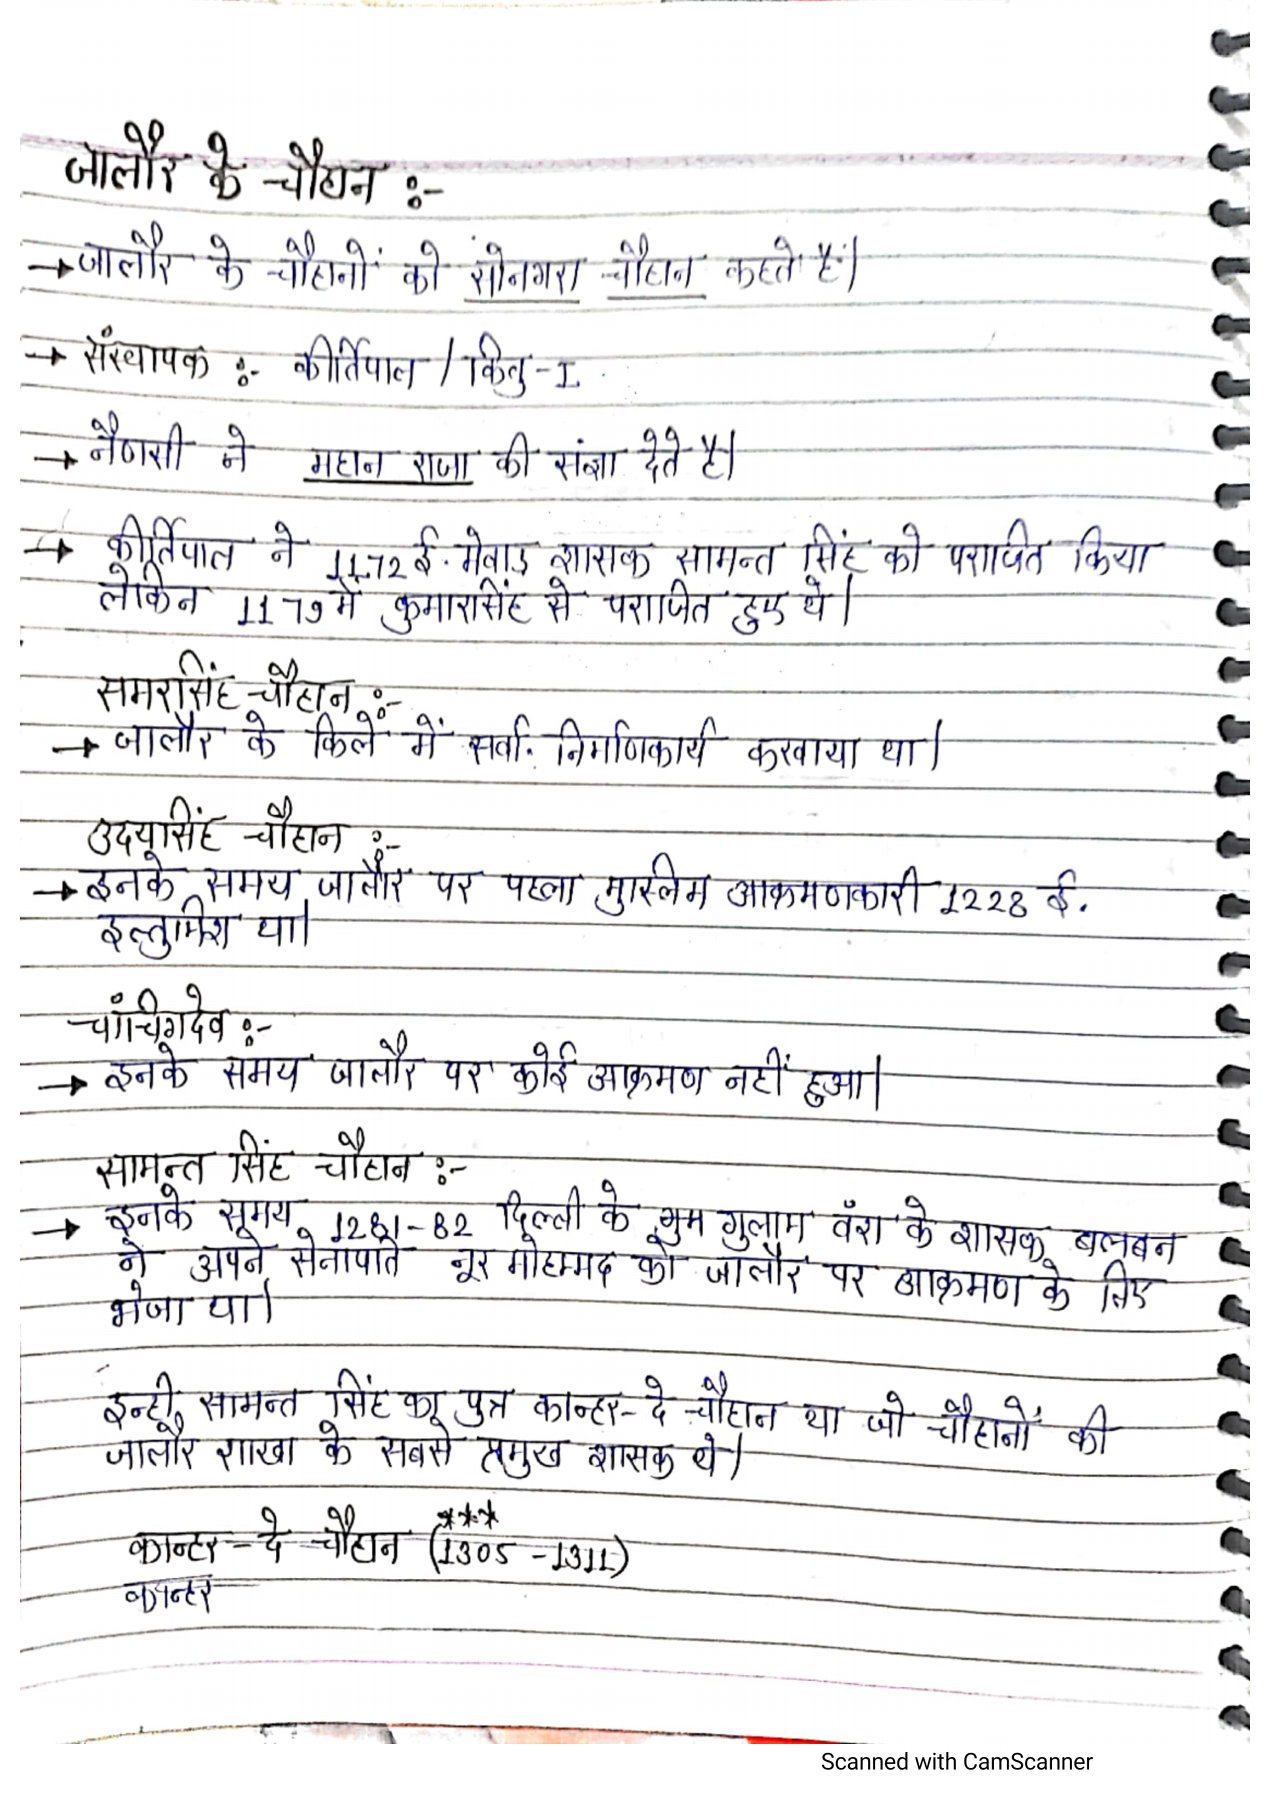 जालौर के चौहान :-
→ जालौर के चौहानों को सोनगरा चौहान कहते हैं।
→ संस्थापक :- कीर्तिपाल / कितु-I
→ नैणसी ने महान राजा की संज्ञा देते है।
→ कीर्तिपाल ने 1172 ई. मेवाड़ शासक सामन्त सिंह को पराजित किया
लेकिन 1179 में कुमारसिंह से पराजित हुए थे।
समरसिंह चौहान :-
→ जालौर के किले में सर्वा. निर्माणकार्य करवाया था।
उदयसिंह चौहान :-
→ इनके समय जालौर पर पहला मुस्लिम आक्रमणकारी 1228 ई.
इल्तुमिश था।
चांचिगदेव :-
→ इनके समय जालौर पर कोई आक्रमण नहीं हुआ।
सामन्त सिंह चौहान :-
→ इनके समय 1281-82 दिल्ली के गुलाम वंश के शासक बलबन
ने अपने सेनापति नूर मोहम्मद को जालौर पर आक्रमण के लिए
भेजा था।
इन्ही सामन्त सिंह का पुत्र कान्हर-दे चौहान था जो चौहानों की
जालौर शाखा के सबसे प्रमुख शासक थे।
***
कान्हर-दे चौहान (1305-1311)
कान्हर
Scanned with CamScanner